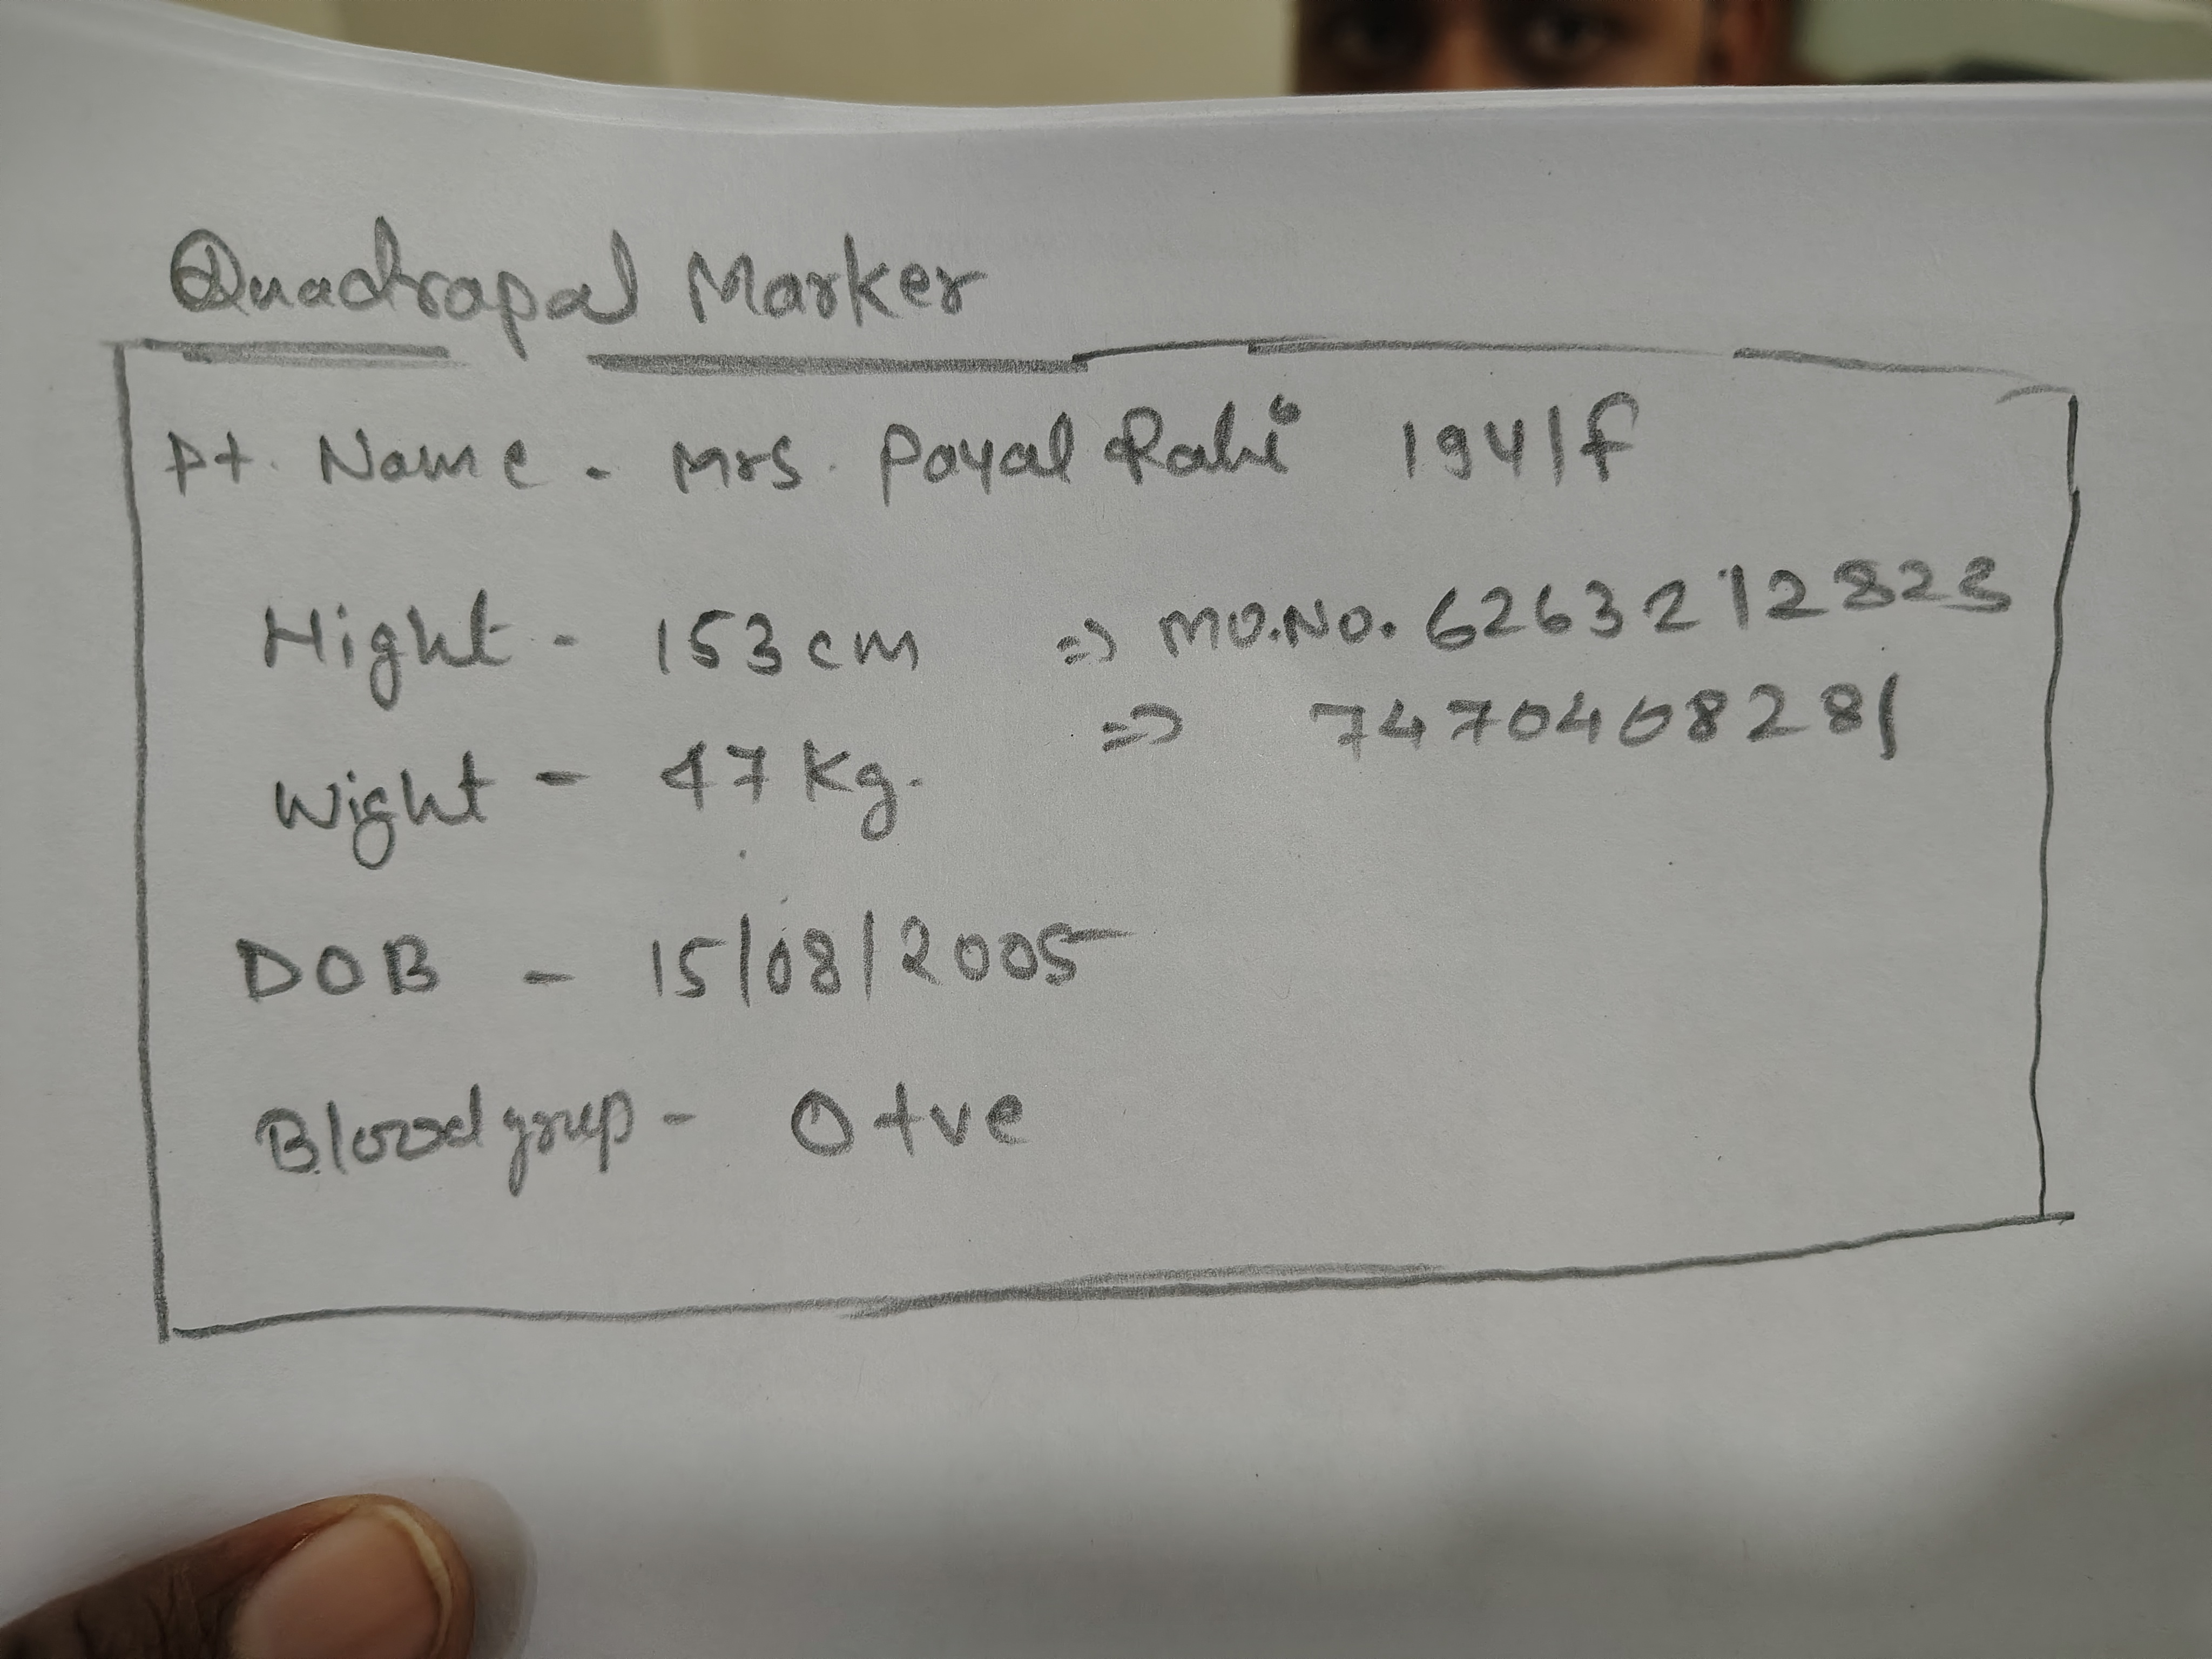 Quadrapal Marker
Pt. Name - Mrs. Payal Rahi 19Y/F
Hight - 153 cm => MO.NO. 6263212823
Wight - 47 Kg. => 7470408281
DOB - 15/08/2005
Blood grup - O+ve